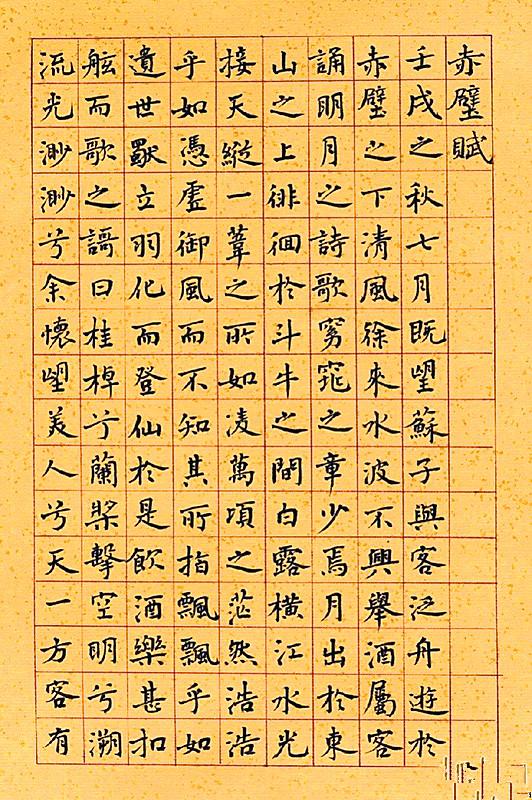 赤壁賦
壬戌之秋七月既望蘇子與客泛舟遊於
赤壁之下清風徐來水波不興舉酒屬客
誦明月之詩歌窈窕之章少焉月出於東
山之上徘徊於斗牛之間白露橫江水光
接天縱一葦之所如凌萬頃之茫然浩浩
乎如憑虛御風而不知其所指飄飄乎如
遺世獨立羽化而登仙於是飲酒樂甚扣
舷而歌之謌曰桂棹兮蘭槳擊空明兮溯
流光渺渺兮余懷望美人兮天一方客有